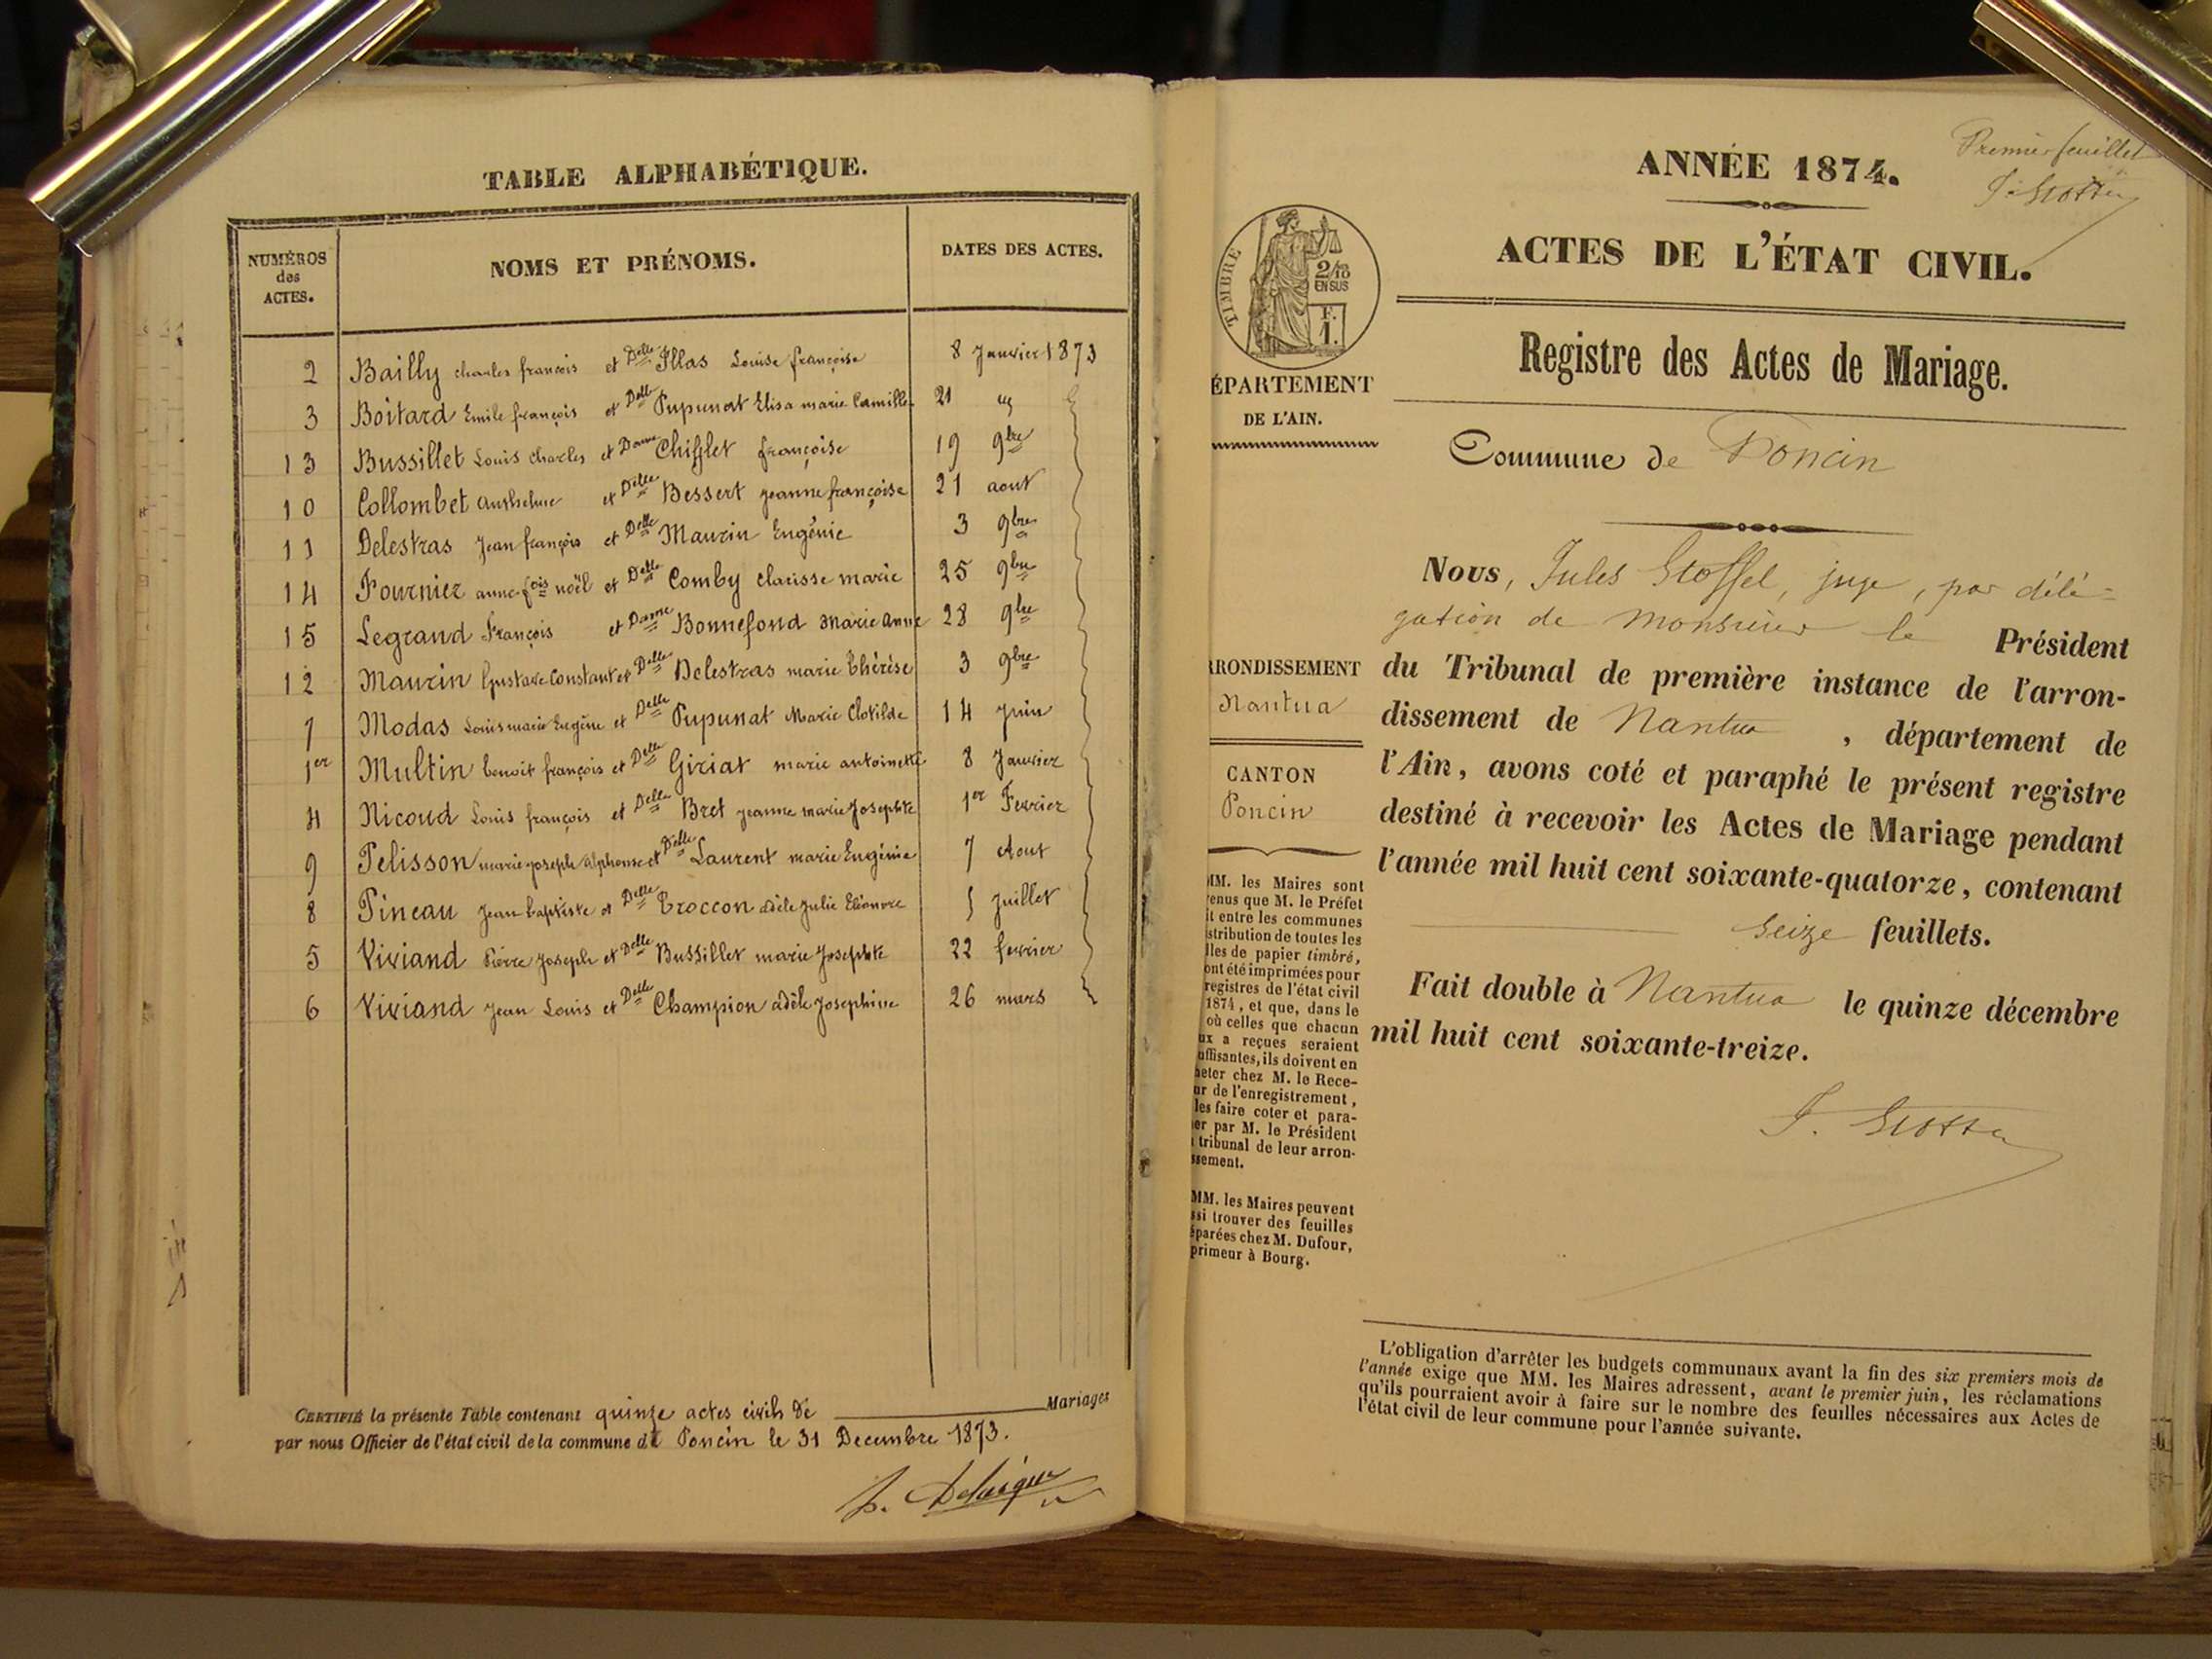 TABLE ALPHABÉTIQUE.
NUMÉROS des ACTES. NOMS ET PRÉNOMS. DATES DES ACTES.
2 Bailly charles francois et Delle Illas Louise françoise 8 Janvier 1873
3 Boitard Emile françois et Delle Pupunat Elisa marie Camille 21 "
13 Bussillet Louis charles et Dame Chifflet françoise 19 9bre
10 Collombet Anthelme et Delle Bessert jeanne françoise 21 aout
11 Delestras Jean françois et Delle Maurin Eugénie 3 9bre
14 Fournier anne fois noël et Delle Comby Clarisse marie 25 9bre
15 Legrand François et Dame Bonnefond Marie Anne 28 9bre
12 Maurin Gustave Constant et Delle Delestras marie Thérèse 3 9bre
7 Modas Louis marie Eugène et Delle Pupunat Marie Clotilde 14 juin
1er Multin benoit françois et Delle Giriat marie antoinette 8 Janvier
4 Nicoud Louis françois et Delle Bret jeanne marie Josephte 1er Fevrier
9 Pelisson marie joseph alphonse et Delle Laurent marie Eugénie 7 Aout
8 Pineau Jean baptiste et Delle Troccon adèle Julie Eléonore 5 Juillet
5 Viviand Pierre Joseph et Delle Bussillet marie Josephte 22 fevrier
6 Viviand Jean Louis et Delle Champion adèle Josephine 26 mars
CERTIFIÉ la présente Table contenant quinze actes civils de Mariages
par nous Officier de l'état civil de la commune de Poncin le 31 Decembre 1873.
Premier feuillet
ANNÉE 1874.
ACTES DE L'ÉTAT CIVIL.
TIMBRE
2/10
EN SUS
F.
1.
Registre des Actes de Mariage.
ÉPARTEMENT
DE L'AIN.
Commune de Poncin
Nous, Jules Stoffel, juge, par délé-
gation de Monsieur le Président
du Tribunal de première instance de l'arron-
dissement de Nantua, département de
l'Ain, avons coté et paraphé le présent registre
destiné à recevoir les Actes de Mariage pendant
l'année mil huit cent soixante-quatorze, contenant
Seize feuillets.
Fait double à Nantua le quinze décembre
mil huit cent soixante-treize.
RRONDISSEMENT
Nantua
CANTON
Poncin
MM. les Maires sont
enus que M. le Préfet
it entre les communes
stribution de toutes les
lles de papier timbré,
ont été imprimées pour
registres de l'état civil
1874, et que, dans le
où celles que chacun
ux a reçues seraient
uffisantes, ils doivent en
heter chez M. le Rece-
ur de l'enregistrement,
les faire coter et para-
er par M. le Président
tribunal de leur arron-
ssement.
MM. les Maires peuvent
ssi trouver des feuilles
éparées chez M. Dufour,
primeur à Bourg.
L'obligation d'arrêter les budgets communaux avant la fin des six premiers mois de
l'année exige que MM. les Maires adressent, avant le premier juin, les réclamations
qu'ils pourraient avoir à faire sur le nombre des feuilles nécessaires aux Actes de
l'état civil de leur commune pour l'année suivante.